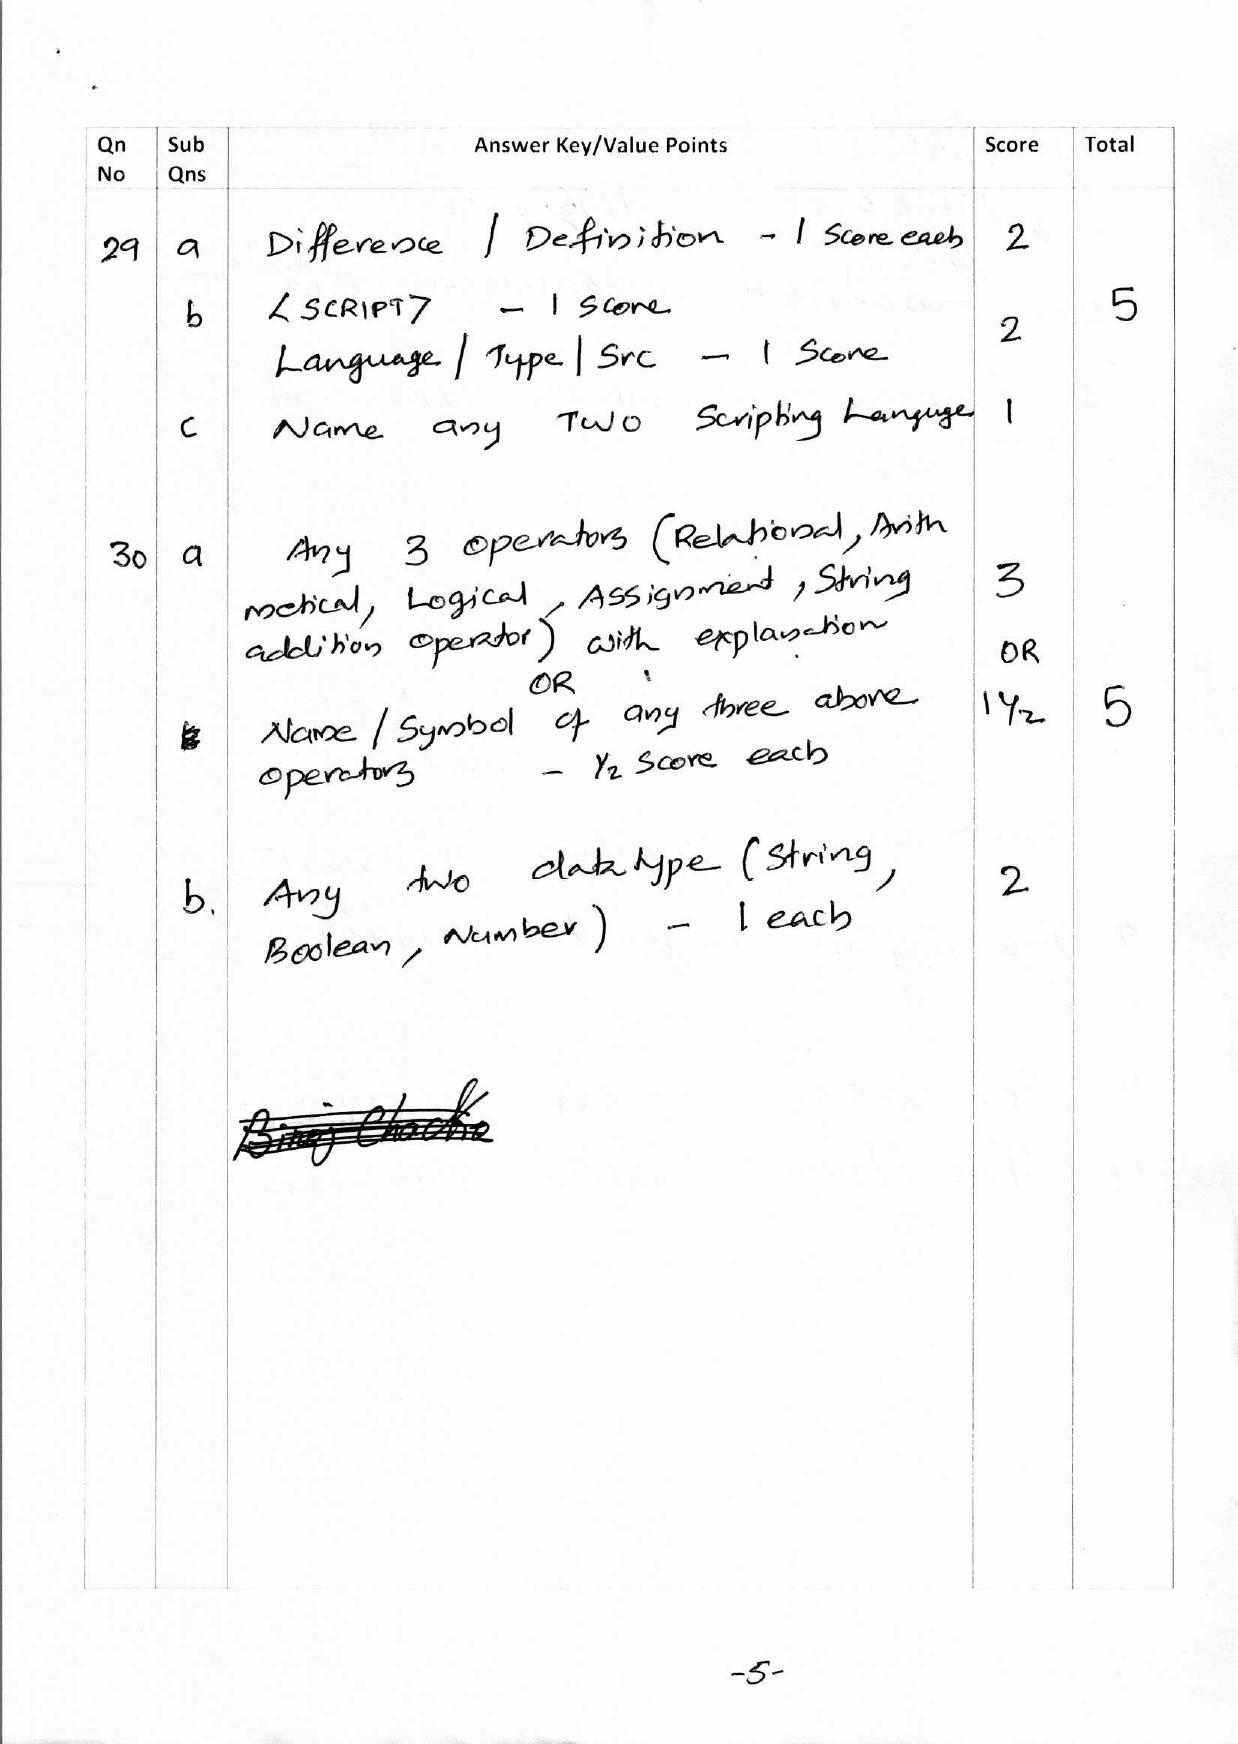 Qn No Sub Qns Answer Key/Value Points Score Total
29 a Difference / Definition - 1 Score each 2
b <SCRIPT> - 1 Score 2 5
Language / Type | Src - 1 Score
c Name any TWO Scripting Languge 1
30 a Any 3 operators (Relational, Arith
metical, Logical, Assignment, String 3
addition operator) with explanation OR
OR
Name / Symbol of any three above 1 1/2 5
operators - 1/2 Score each
b. Any two data type (String, 2
Boolean, Number) - 1 each
-5-